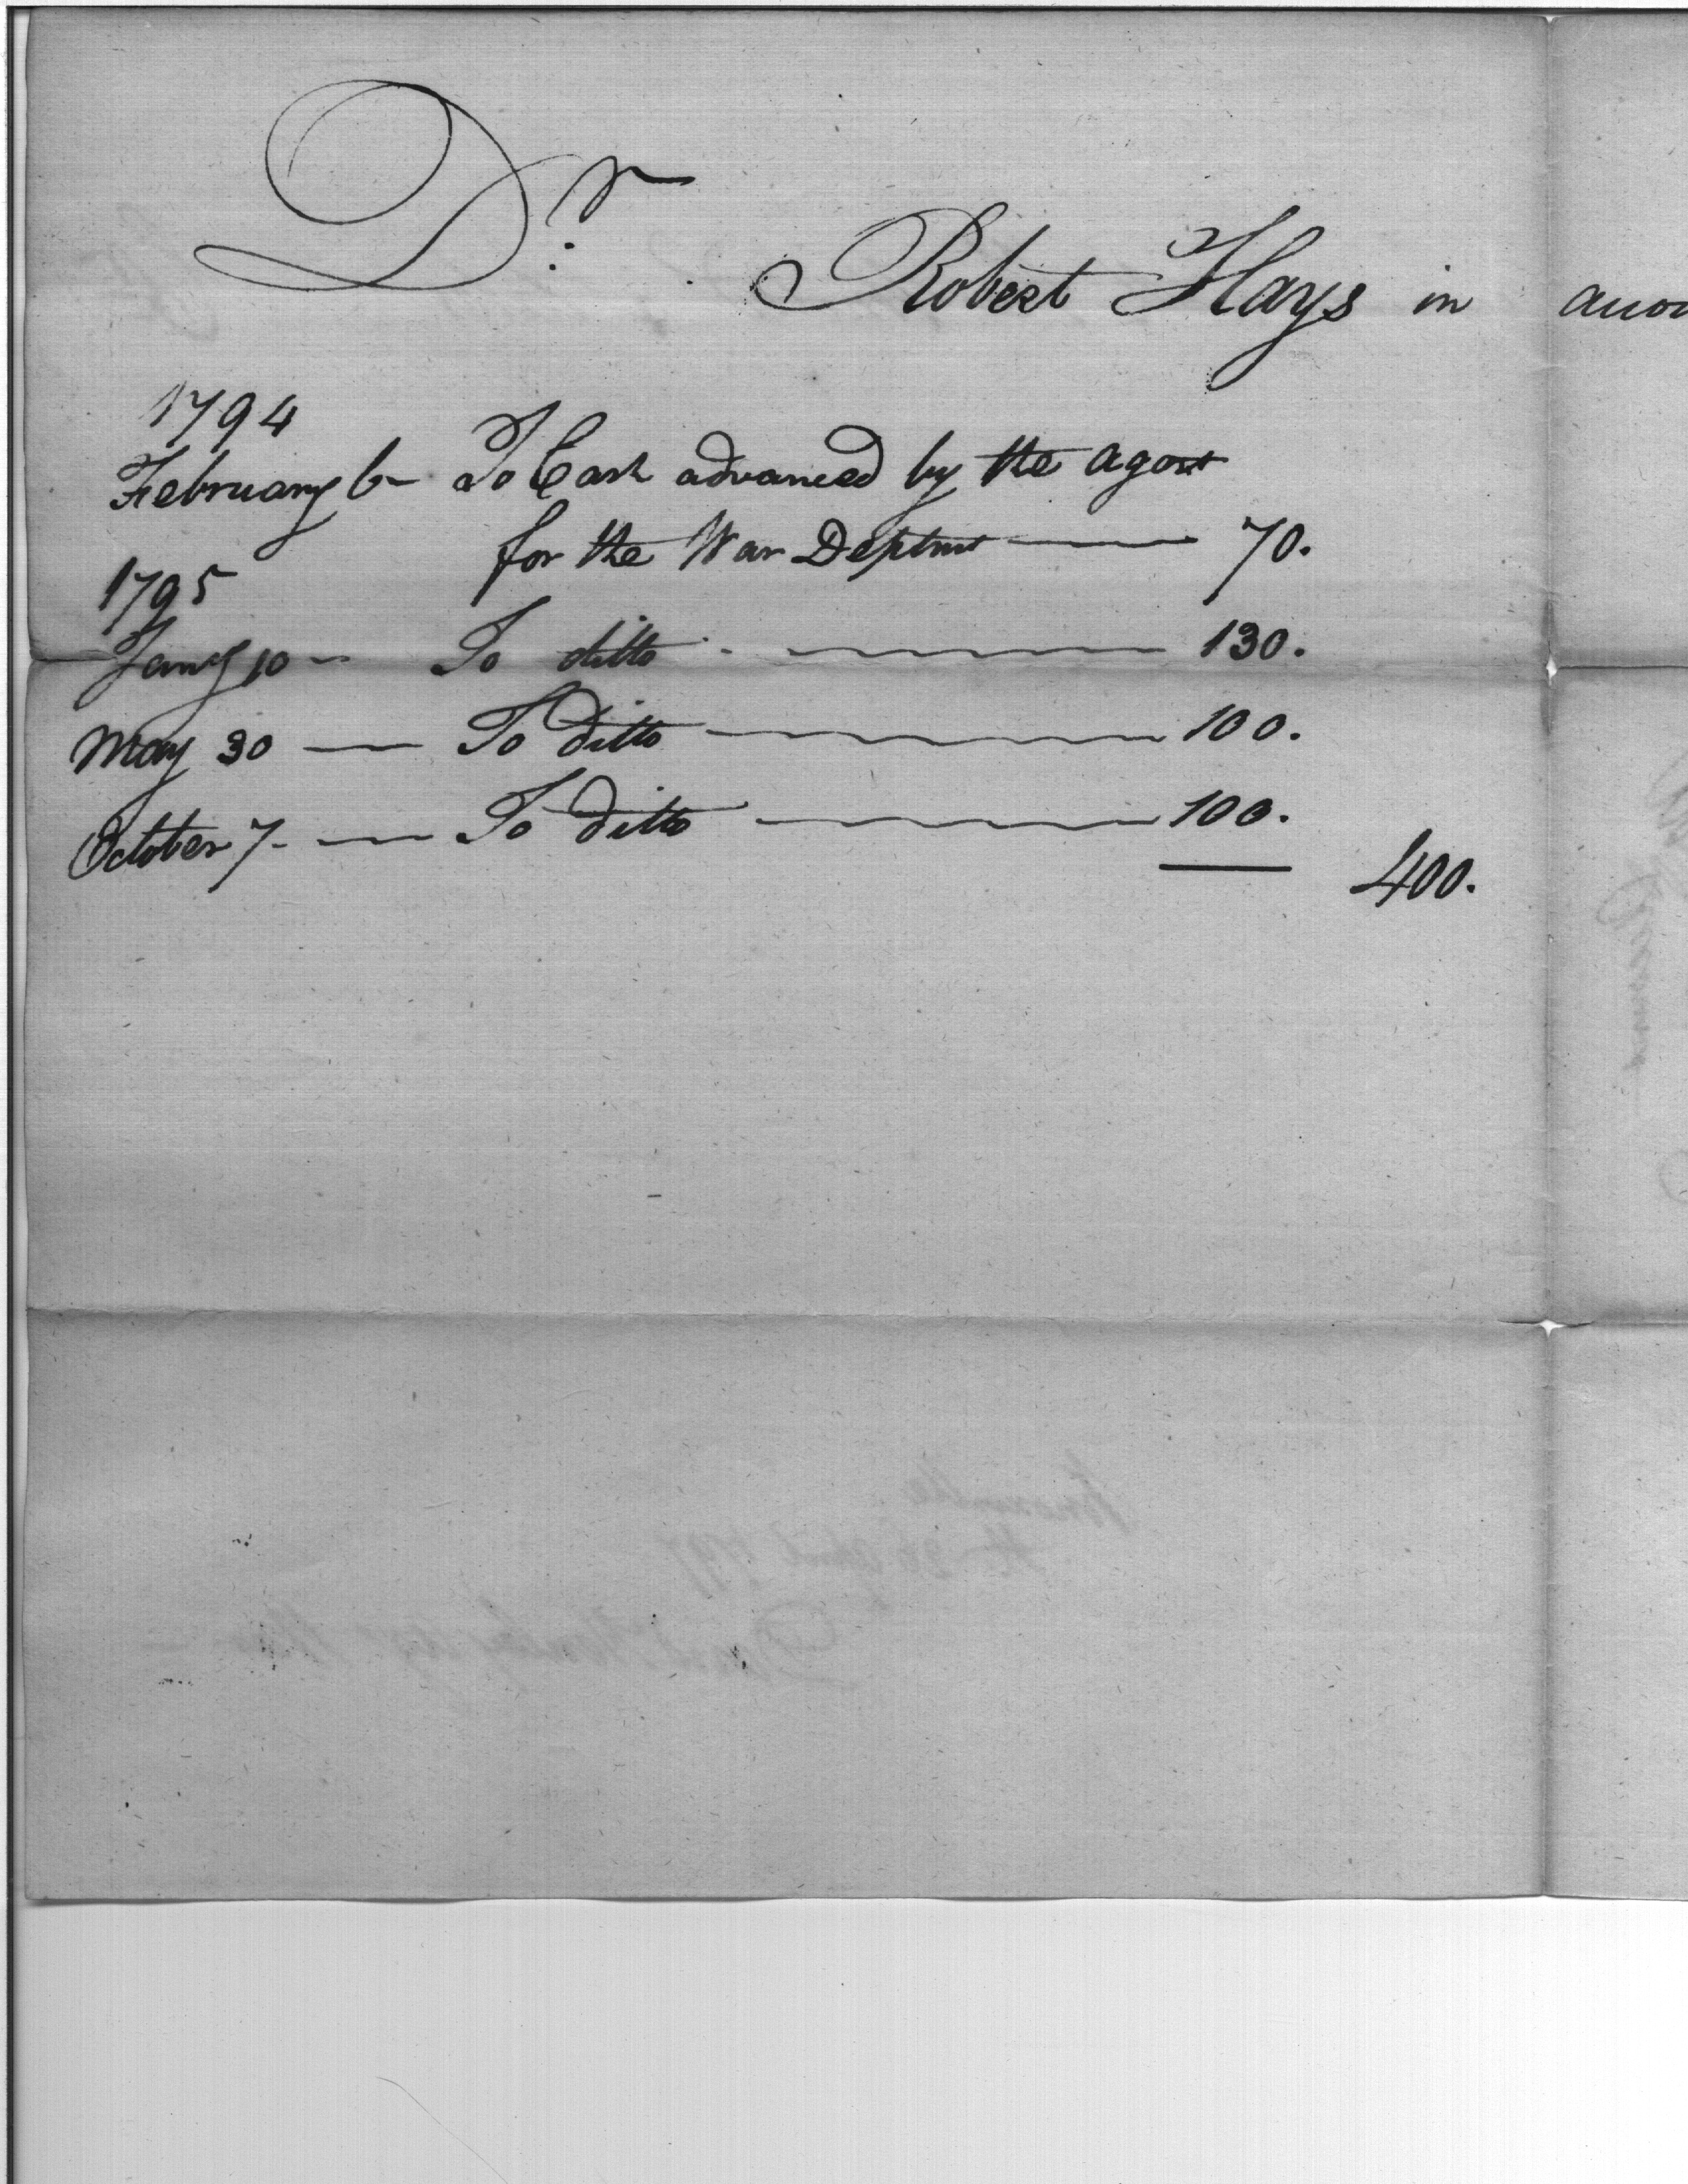 Dr.
Robert Hays in accou
1794
February 6 - To Cash advanced by the agent
for the War Deptmt — 70.
1795
Jany 10 - To ditto — 130.
May 30 — To Ditto — 100.
October 7 - — To Ditto — 100.
400.